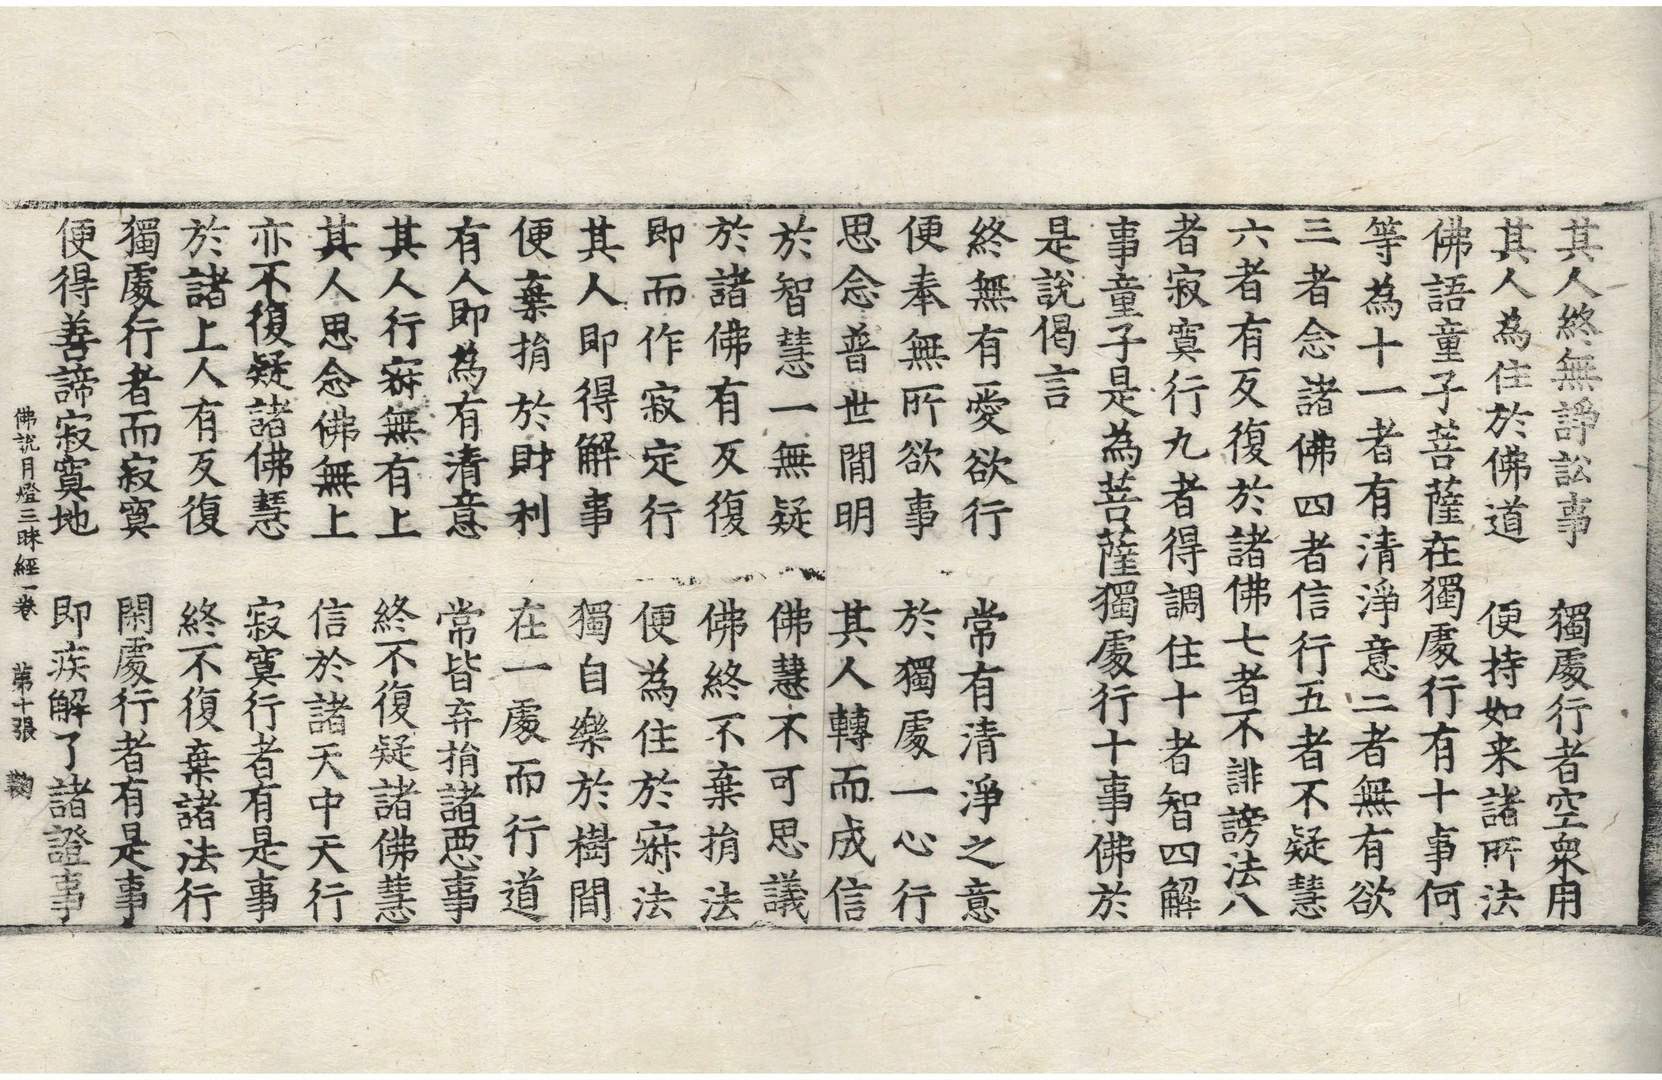 其人終無諍訟事　獨處行者空衆用
其人為住於佛道　便持如来諸所法
佛語童子菩薩在獨處行有十事何
等為十一者有清淨意二者無有欲
三者念諸佛四者信行五者不疑慧
六者有反復於諸佛七者不誹謗法八
者寂寞行九者得調住十者智四解
事童子是為菩薩獨處行十事佛於
是說偈言
終無有愛欲行　常有清淨之意
便奉無所欲事　於獨處一心行
思念普世間明　其人轉而成信
於智慧一無疑　佛慧不可思議
於諸佛有反復　佛終不棄捐法
即而作寂定行　便為住於寂法
其人即得解事　獨自樂於樹間
便棄捐於財利　在一處而行道
有人即為有清意　常皆弃捐諸惡事
其人行寂無有上　終不復疑諸佛慧
其人思念佛無上　信於諸天中天行
亦不復疑諸佛慧　寂寞行者有是事
於諸上人有反復　終不復棄諸法行
獨處行者而寂寞　閑處行者有是事
便得善諦寂寞地　即疾解了諸證事
佛說月燈三昧經一卷　第十張　鞠